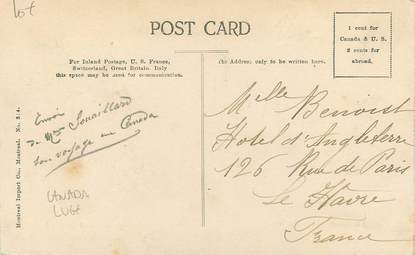 lot
POST CARD
1 cent for
Canada & U. S.
2 cents for
abroad.
For Inland Postage, U. S. France,
Switzerland, Great Britain, Italy
this space may be used for communication.
(he Address only to be written here.
Montreal Import Co., Montreal. No. 814.
Envoi
de Mme Souaillard
son voyage au Canada
CANADA
LUGE
Melle Benoist
Hotel d'Angleterre
126 Rue de Paris
Le Havre
France